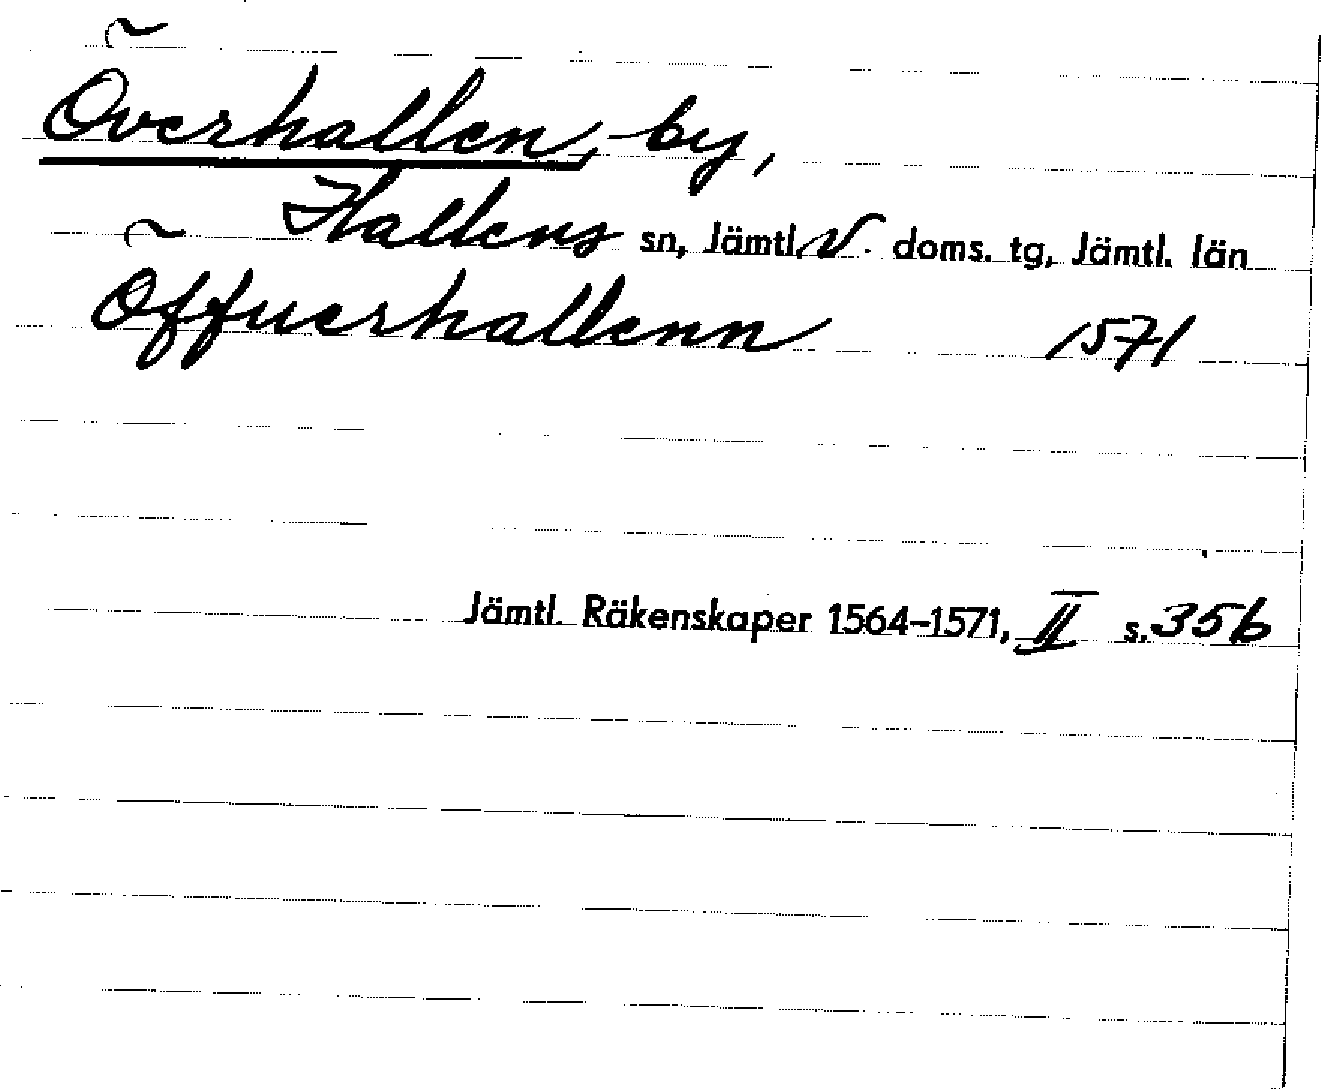 Överhallen, by,
Hallens sn, Jämtl. v. doms. tg, Jämtl. län
Öffuerhallenn 1571
Jämtl. Räkenskaper 1564-1571, II s. 356